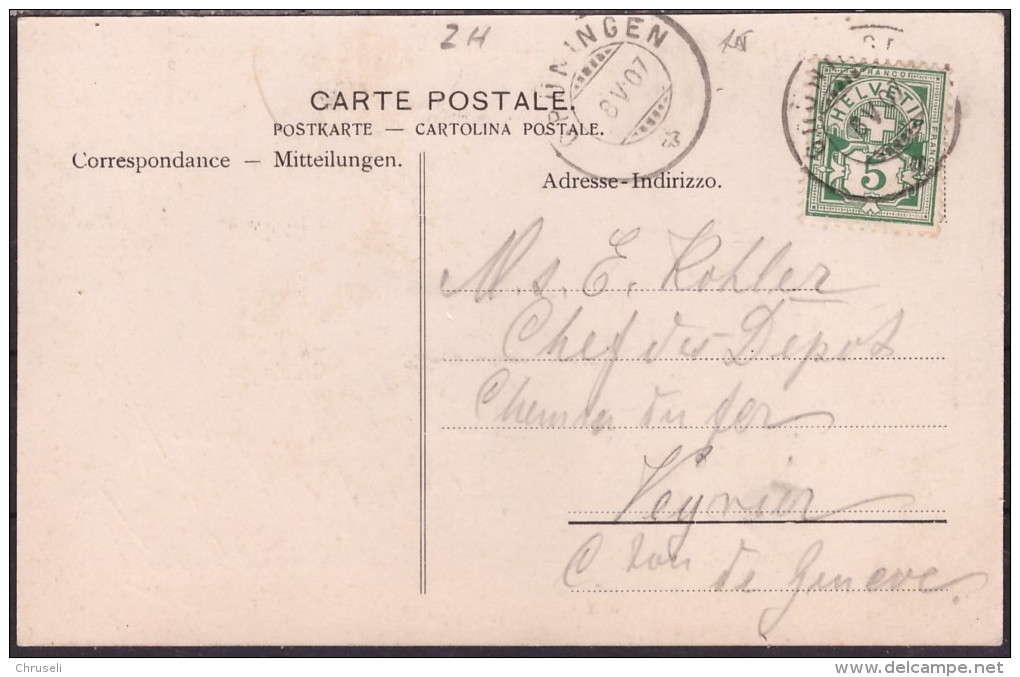 ZH
GRÜNINGEN
8 V 07
FRANCO
HELVETIA
FRANCO
5
CARTE POSTALE.
POSTKARTE — CARTOLINA POSTALE.
Correspondance — Mitteilungen.
Adresse-Indirizzo.
M.s. E. Kohler
Chef des Depot
Chemin du fer
Veyrier
C. ton de Geneve.
Chruseli
delcampe.net